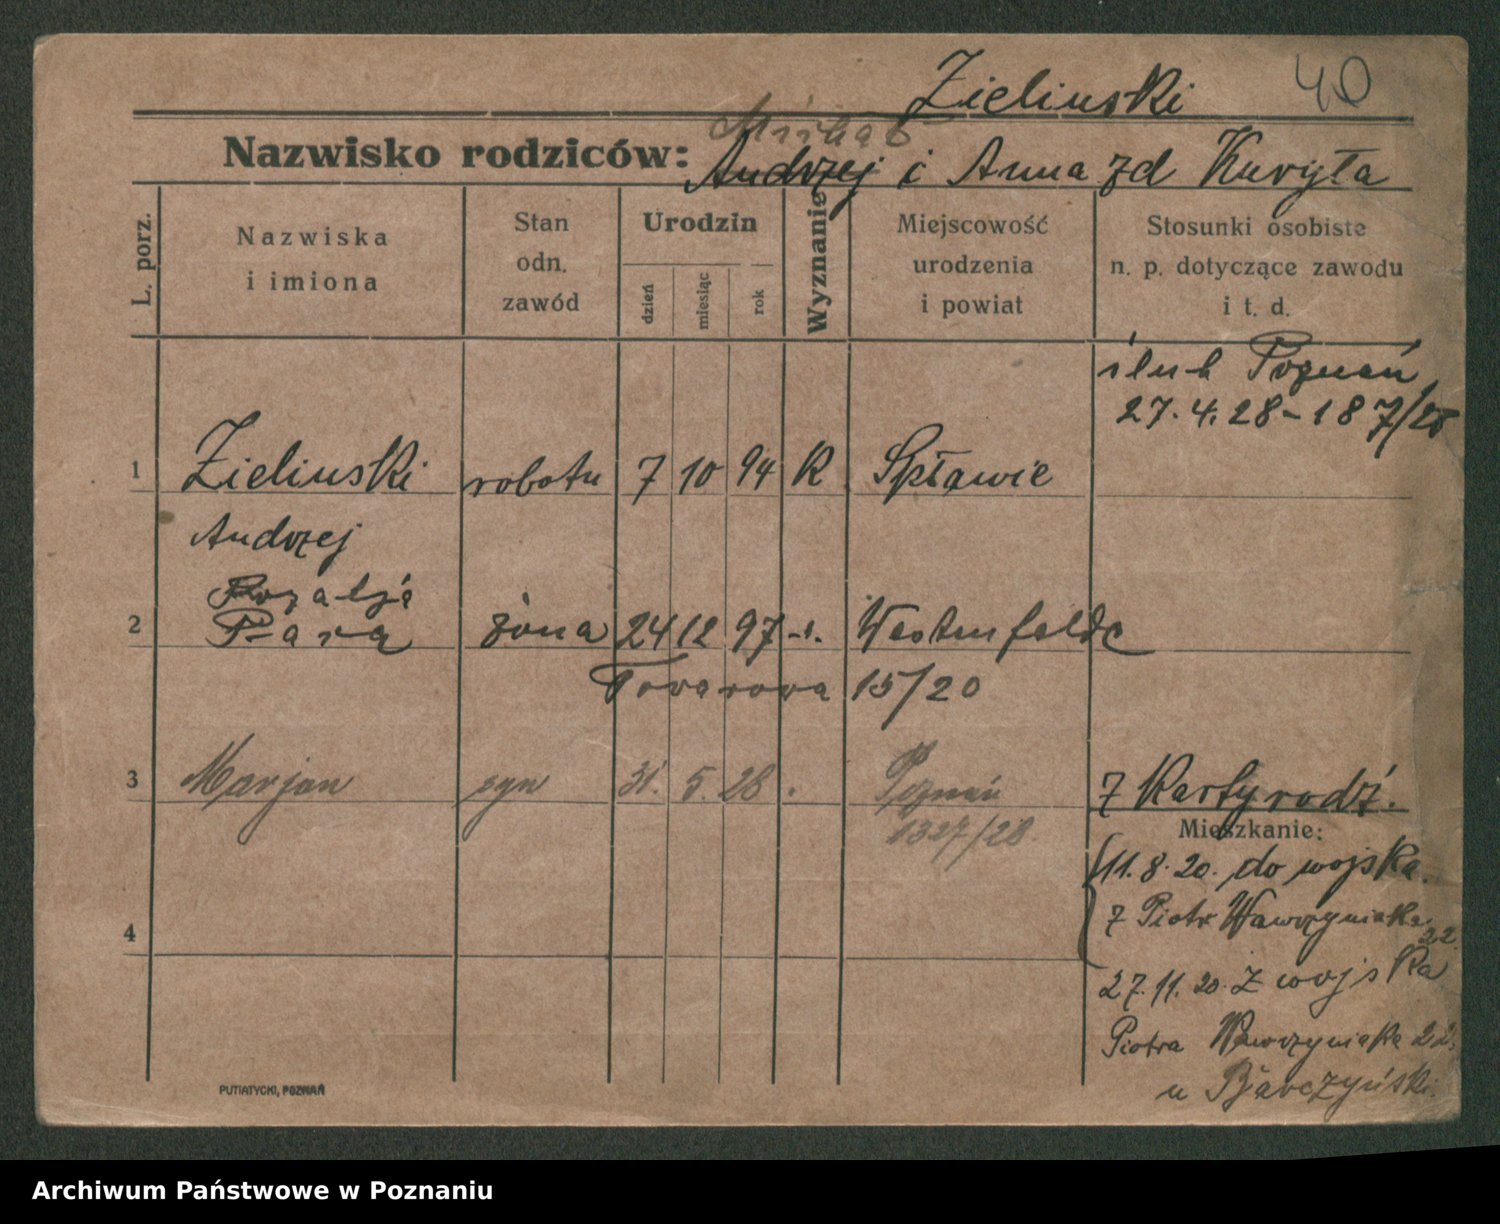 Zielinski 40
Michał
Nazwisko rodziców: Andrzej i Anna zd Kuryła
L. porz.
Nazwiska i imiona
Stan odn. zawód
Urodzin
dzień
miesiąc
rok
Wyznanie
Miejscowość urodzenia i powiat
Stosunki osobiste n. p. dotyczące zawodu i t. d.
ślub Poznań
27.4.28-187/28
1 Zielinski robotn 7 10 94 K Spławie
Andrzej
Rozalja
2 żona 24 12 97 -"- Westenfelde
Towarowa 15/20
3 Marjan syn 31. 5. 28 Poznań
1327/28.
z Karty rodź.
Mieszkanie:
11.8.20. do wojska.
z Piotr Wawrzyniaka 22.
4
27.11.20. z wojska
Piotra Wawrzyniaka 22.
u
PUTIATYCKI, POZNAŃ
Archiwum Państwowe w Poznaniu